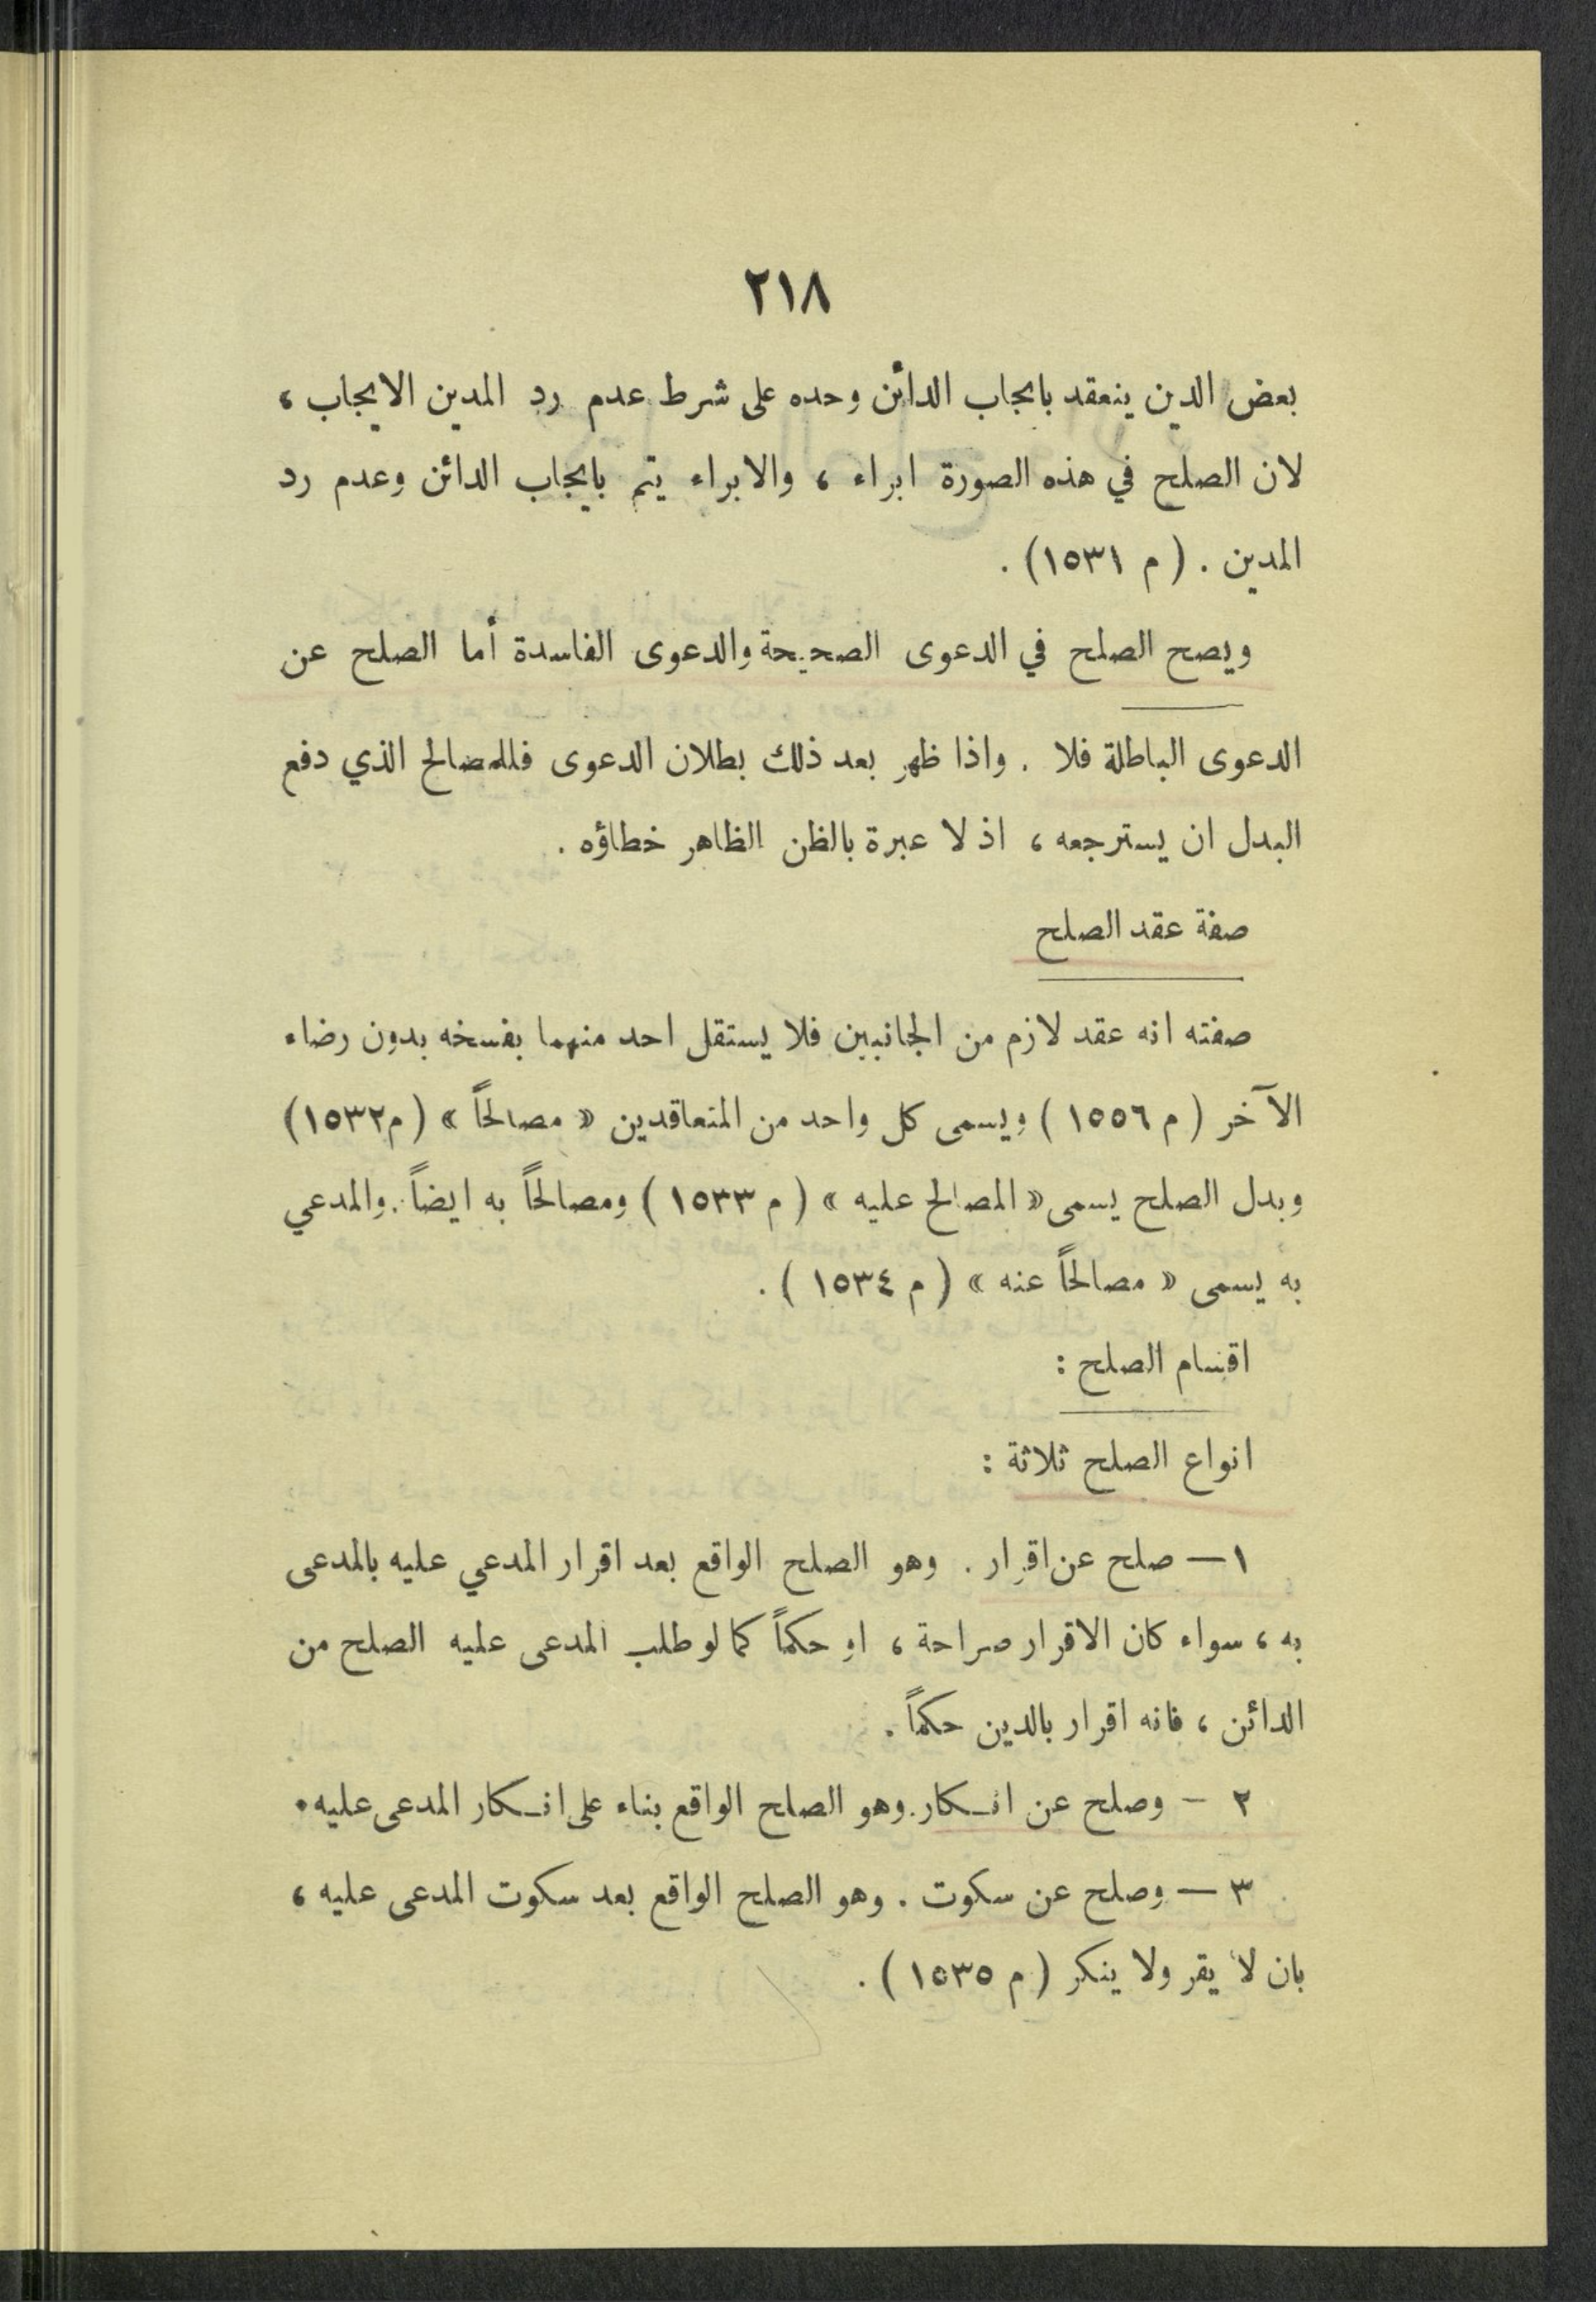 ٢١٨
بعض الدين ينعقد بايجاب الدائن وحده على شرط عدم رد المدين الايجاب ،
لان الصلح في هذه الصورة ابراء ، والابراء يتم بايجاب الدائن وعدم رد
المدين . ( م ١٥٣١) .
ويصح الصلح في الدعوى الصحيحة والدعوى الفاسدة أما الصلح عن
الدعوى الباطلة فلا . واذا ظهر بعد ذلك بطلان الدعوى فللمصالح الذي دفع
البدل ان يسترجعه ، اذ لا عبرة بالظن الظاهر خطاؤه .
صفة عقد الصلح
صفته انه عقد لازم من الجانبين فلا يستقل احد منهما بفسخه بدون رضاء
الآخر ( م ١٥٥٦ ) ويسمى كل واحد من المتعاقدين « مصالحاً » ( م١٥٣٢)
وبدل الصلح يسمى « المصالح عليه » ( م ١٥٣٣ ) ومصالحاً به ايضاً . والمدعي
به يسمى « مصالحاً عنه » ( م ١٥٣٤ ) .
اقسام الصلح :
انواع الصلح ثلاثة :
١ — صلح عن اقرار . وهو الصلح الواقع بعد اقرار المدعي عليه بالمدعى
به ، سواء كان الاقرار صراحة ، او حكماً كما لو طلب المدعى عليه الصلح من
الدائن ، فانه اقرار بالدين حكماً .
٢ - وصلح عن انـكار . وهو الصلح الواقع بناء على انـكار المدعى عليه .
٣ — وصلح عن سكوت . وهو الصلح الواقع بعد سكوت المدعى عليه ،
بان لا يقر ولا ينكر ( م ١٥٣٥ ) .